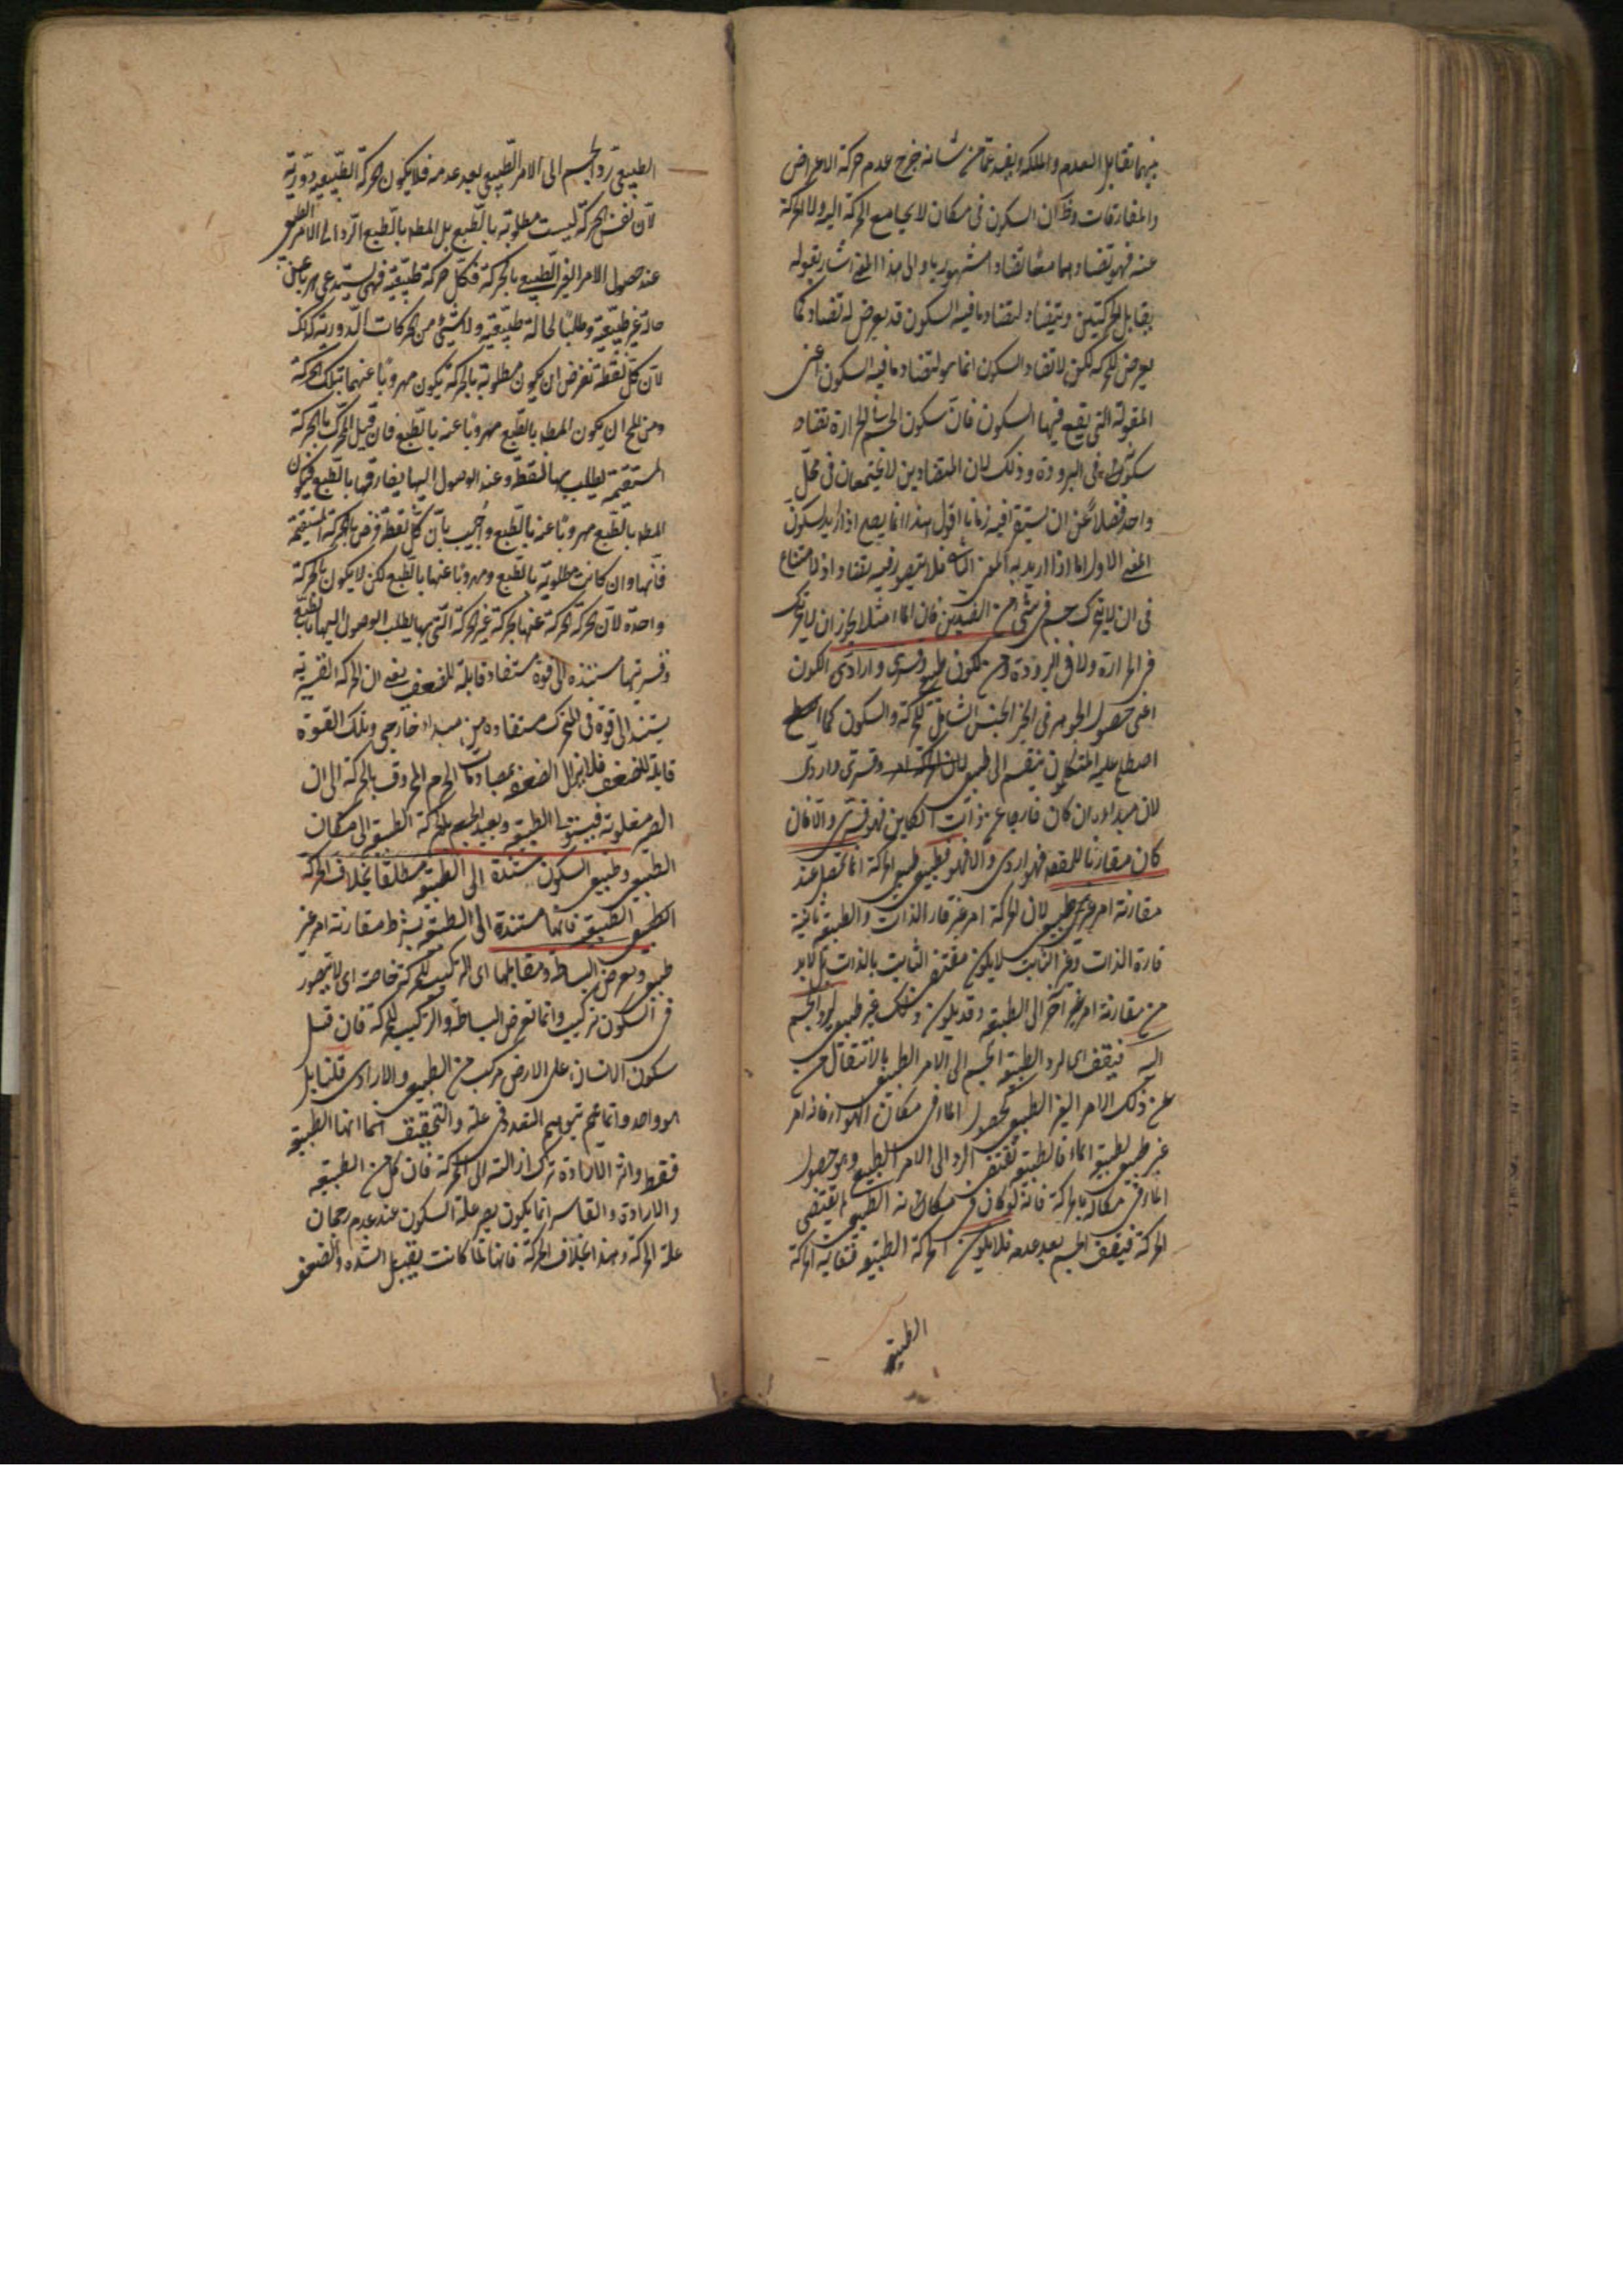 بينهما تقابل العدم والملكة وبقيد عما من شانه خرج عدم حركة الاعراض
والمفارقات وظ ان السكون فى مكان لا يجامع الحركة اليه ولا الحركة
عنه فهو تضاد وهما متضادا مشهوريا والى هذا المعنى اشار بقوله
يقابل الحركتين ويتضاد لتضاد ما فيه السكون قد يعرض له تضاد كما
يعرض للحركة لكن لا تضاد السكون انما هو لتضاد ما فيه السكون اعنى
المقولة التى يقع فيها السكون فان سكون الجسم فى الحرارة تضاد
سكونه فى البرودة وذلك لان المتضادين لا يجتمعان فى محل
واحد فضلا عن ان يستقر فيه زمانا اقول هذا انما يصح اذا اريد بالسكون
المعنى الاول اما اذا اريد به المعنى الثانى فلا يتصور فيه تضاد اذ لا امتناع
فى ان لا يتحرك جسم فى شئ من الضدين فان الماء مثلا يجوز ان لا يتحرك
فى الحرارة ولا فى البرودة ومن الكون طبيعى وقسرى وارادى الكون
اعنى حصول الجوهر فى الحيز الجنس الشامل للحركة والسكون كما
اصطلح عليه المتكلمون ينقسم الى طبيعى وقسرى وارادى
لان مبداه ان كان خارجا عن ذات الكاين فهو قسرى والا فان
كان مقارنا للقصد فهو ارادى والا فهو طبيعى فطبيعى الحركة انما يحصل عند
مقارنة امر غير طبيعى لان الحركة امر غير قار الذات والطبيعة ثابتة
قارة الذات وغير الثابت لا يكون مقتضى الثابت بالذات بل لا بد
من مقارنة امر غير اخر الى الطبيعة وقد يكون ذلك غير طبيعى ليرد الجسم
اليه فيقف اى لرد الطبيعة الجسم الى الامر الطبيعى بالانتقال
عن ذلك الامر الغير الطبيعى كحصول الماء فى مكان الهواء فانه امر
غير طبيعى لطبيعة الماء فالطبيعة تقتضى الرد الى الامر الطبيعى وهو حصول
الماء فى مكانه بالحركة فانه لو كان فى مكانه الطبيعى لم يقتضى
الحركة فيقف الجسم بعد عدمه فلا يكون الحركة الطبيعية فغاية الحركة
الطبيعية
الطبيعى رد الجسم الى الامر الطبيعى بعد عدمه فلا يكون الحركة الطبيعية دورية
لان نفس الحركة ليست مطلوبة بالطبع بل المط بالطبع الرد الى الامر الطبيعى
عند حصول الامر الغير الطبيعى بالحركة فكل حركة طبيعية فهى يستدعى هربا عن
حالة غير طبيعية وطلبا لحالة طبيعية ولا شئ من الحركات الدورية كذلك
لان كل نقطة تفرض ان يكون مطلوبة بالحركة يكون مهروبا عنها بتلك الحركة
ومن المح ان يكون المط بالطبع مهروبا عنه بالطبع فان قيل المتحرك بالحركة
المستقيمة يطلب بها النقطة وعند الوصول اليها يفارقها بالطبع فيكون
المط بالطبع مهروبا عنه بالطبع واجيب بان كل نقطة فرض بالحركة المستقيمة
فانها وان كانت مطلوبة بالطبع ومهروبا عنها بالطبع لكن لا يكون بالحركة
واحدة لان الحركة عنها بحركة غير الحركة التى بها يطلب الوصول اليها بالطبع
وقسريتها مستندة الى قوة مستفادة قابلة للضعف يعنى ان الحركة القسرية
يستند الى قوة فى المتحرك مستفادة من مبداء خارجى وتلك القوة
قابلة للضعف فلا يزال الضعف بمصادمات الجرم المخروق بالحركة الى ان
الصير مغلوبة فيستولى الطبيعة ويعيد الجسم بالحركة الطبيعية الى مكانه
الطبيعى وطبيعى السكون مستندة الى الطبيعة مطلقا بخلاف الحركة
الطبيعية فانها مستندة الى الطبيعة بشرط مقارنة امر غير
طبيعى ويعرض البساطة ومقابلها اى التركيب للحركة خاصة اى لا يتصور
فى السكون تركيب وانما تعرض البساطة والتركيب للحركة فان قيل
سكون الانسان على الارض مركب من الطبيعى والارادى قلنا بل
هو واحد وانما يتوهم التعدد فى علته والتحقيق انها الطبيعة
فقط واثر الارادة ترك ازالته الى الحركة فان كل من الطبيعة
والارادة والقاسر انما يكون علة السكون عند عدم رجحان
علة الحركة وهذا بخلاف الحركة فانها لما كانت يقبل الشدة والضعف